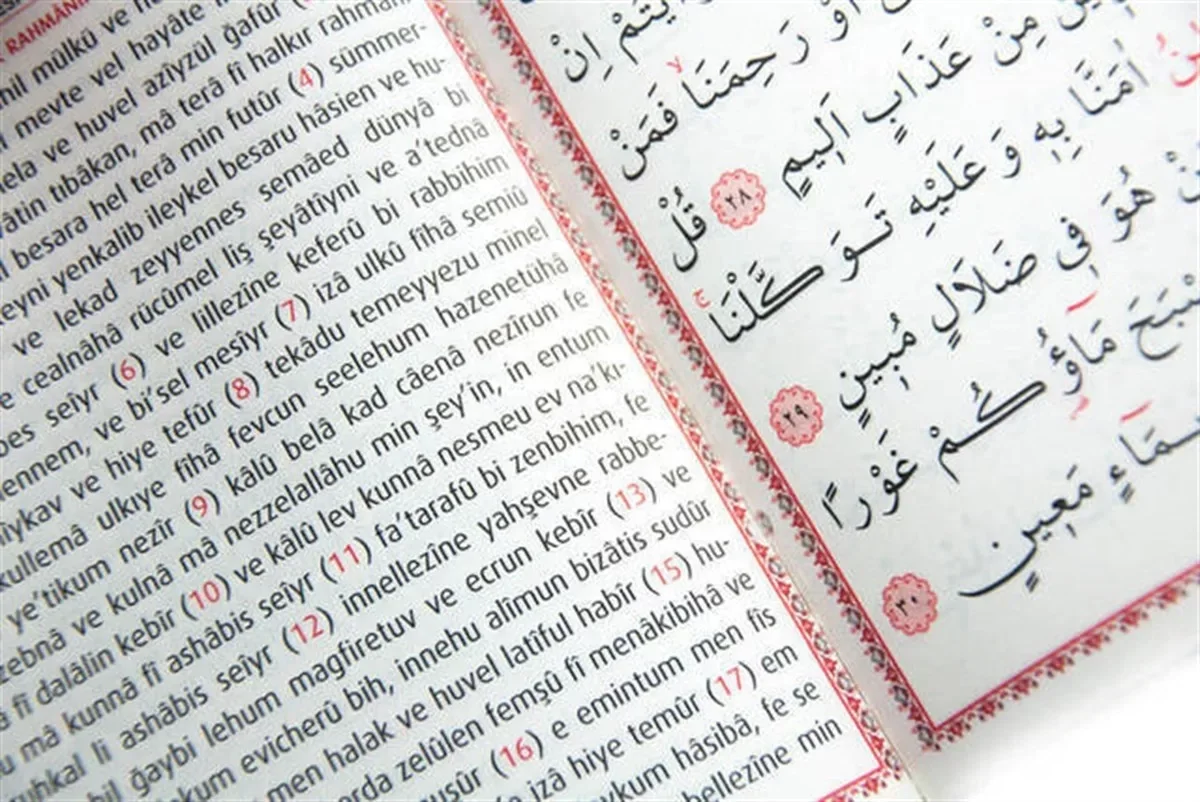 RAHMANİ
mülkü ve
mevte vel hayâte
ve huvel azîyzül ğafûr
tıbâkan, mâ terâ fî halkır rahmâni
besara hel terâ min futûr (4) sümmer-
yenkalib ileykel besaru hâsien ve hu-
ve lekad zeyyennes semâed dünyâ bi
cealnâhâ rücûmel liş şeyâtîyni ve a'tednâ
seîyr (6) ve lillezîne keferû bi rabbihim
ve bi'sel mesîyr (7) izâ ulkû fîhâ semiû
ve hiye tefûr (8) tekâdu temeyyezu minel
kullemâ ulkıye fîhâ fevcun seelehum hazenetühâ
ye'tikum nezîr (9) kâlû belâ kad câenâ nezîrun fe
zebnâ ve kulnâ mâ nezzelallâhu min şey'in, in entum
fî dalâlin kebîr (10) ve kâlû lev kunnâ nesmeu ev na'kı-
mâ kunnâ fî ashâbis seîyr (11) fa'tarafû bi zenbihim, fe
li ashâbis seîyr (12) innellezîne yahşevne rabbe-
ğaybi lehum magfiretuv ve ecrun kebîr (13) ve
evicherû bih, innehu alîmun bizâtis sudûr
men halak ve huvel latîful habîr (15) hu-
zelûlen femşû fî menâkibihâ ve
(16) e emintum men fîs
izâ hiye temûr (17) em
hâsibâ, fe se
min
اِنْ
اَوْ رَحِمَنَا فَمَنْ
مِنْ عَذَابٍ اَلِيمٍ ٢٨ قُلْ
اٰمَنَّا بِهِ وَ عَلَيْهِ تَوَكَّلْنَا
هُوَ فِى ضَلَالٍ مُبِينٍ ٢٩
مَاؤُكُمْ غَوْرًا
مَعِينٍ ٣٠